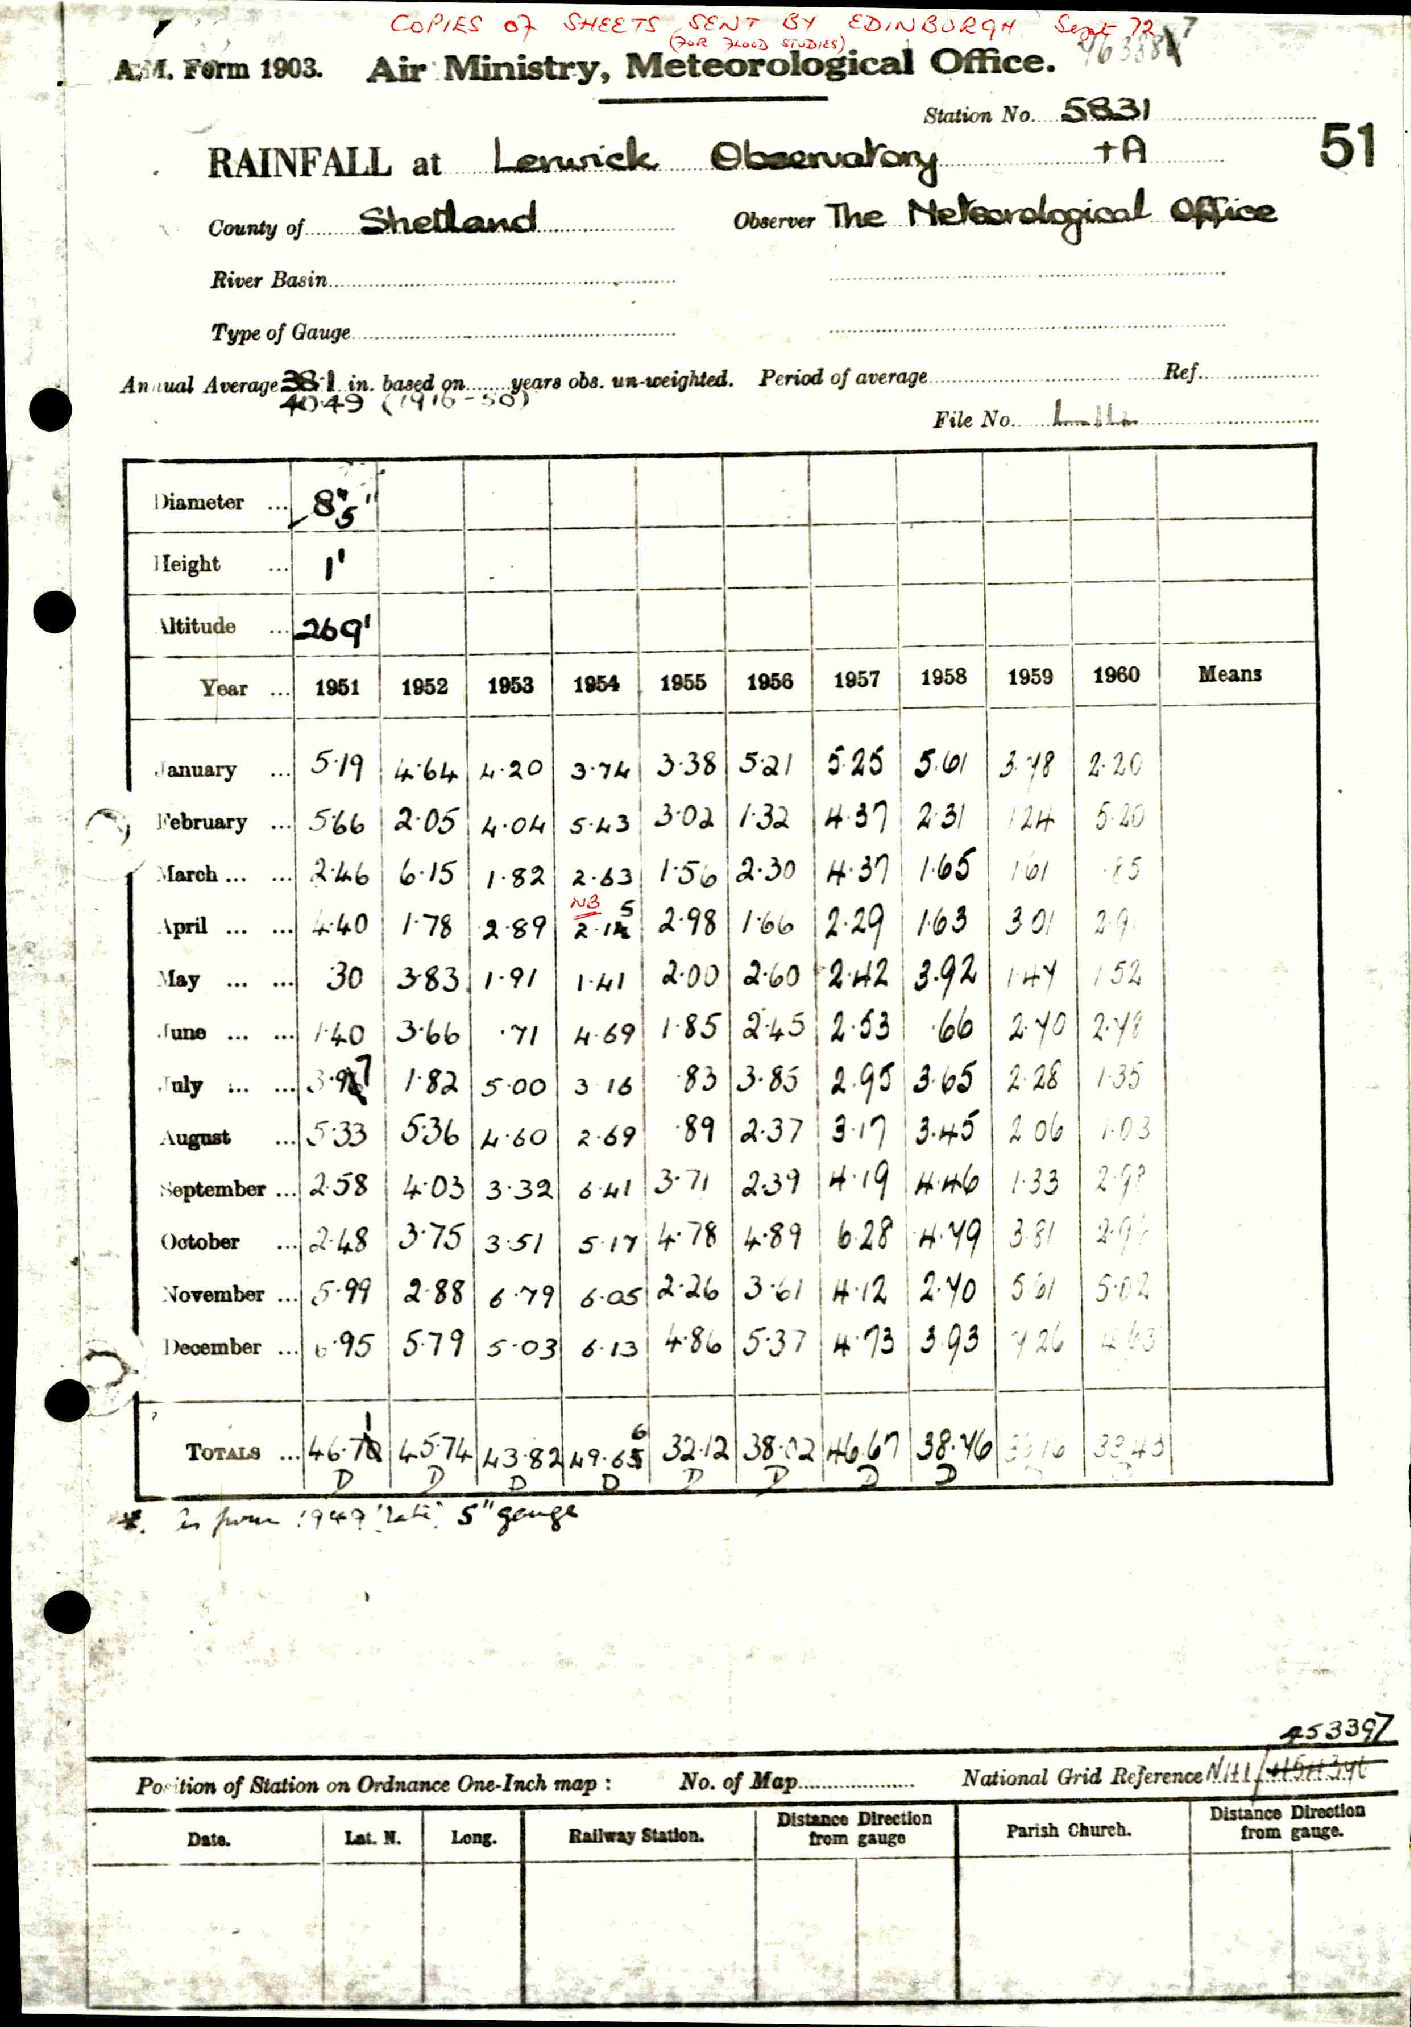 COPIES OF SHEETS SENT BY EDINBURGH Sept 72
(FOR FLOOD STUDIES)
7
A.M. Form 1903. Air Ministry, Meteorological Office.
Station No. 5831
51
RAINFALL at Lerwick Observatory +A
County of Shetland Observer The Meteorological Office
River Basin
Type of Gauge
Annual Average 38.1 in. based on years obs. un-weighted. Period of average Ref.
40.49 (1916-50)
File No.
Diameter ... 8" 5"
Height ... 1'
Altitude ... 269'
Year ... 1951 1952 1953 1954 1955 1956 1957 1958 1959 1960 Means
January ... 5.19 4.64 4.20 3.74 3.38 5.21 5.25 5.61 3.78 2.20
February ... 5.66 2.05 4.04 5.43 3.02 1.32 4.37 2.31 1.24 5.20
March ... ... 2.46 6.15 1.82 2.63 1.56 2.30 4.37 1.65 1.61 .85
NB 5
April ... ... 4.40 1.78 2.89 2.14 2.98 1.66 2.29 1.63 3.01 2.91
May ... ... .30 3.83 1.91 1.41 2.00 2.60 2.42 3.92 1.47 1.52
June ... ... 1.40 3.66 .71 4.69 1.85 2.45 2.53 .66 2.70 2.78
July ... ... 3.96 7 1.82 5.00 3.16 .83 3.85 2.95 3.65 2.28 1.35
August ... 5.33 5.36 4.60 2.69 .89 2.37 3.17 3.45 2.06 1.03
September ... 2.58 4.03 3.32 6.41 3.71 2.39 4.19 4.46 1.33 2.98
October ... 2.48 3.75 3.51 5.17 4.78 4.89 6.28 4.79 3.81 2.96
November ... 5.99 2.88 6.79 6.05 2.26 3.61 4.12 2.70 5.61 5.02
December ... 6.95 5.79 5.03 6.13 4.86 5.37 4.73 3.93 7.26 4.63
1 6
TOTALS ... 46.70 45.74 43.82 49.65 32.12 38.02 46.67 38.76 36.16 33.43
D D D D D D D D
*. As from 1949 5" gauge
453397
Position of Station on Ordnance One-Inch map : No. of Map National Grid Reference
Date. Lat. N. Long. Railway Station. Distance Direction from gauge Parish Church. Distance Direction from gauge.